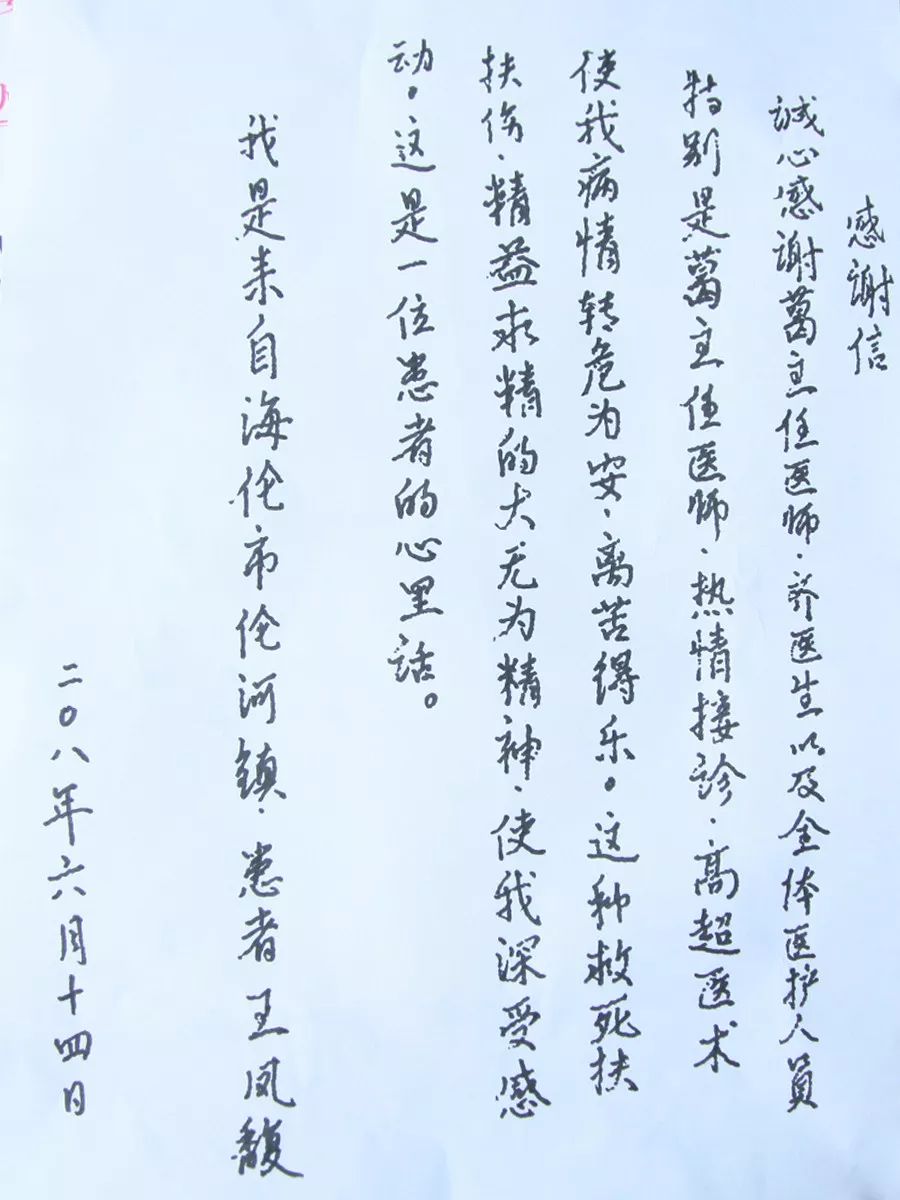 感谢信
誠心感谢葛主任医师、齐医生以及全体医护人員
特别是葛主任医师、热情接诊、高超医术
使我病情转危为安、离苦得乐。这种救死扶
扶伤、精益求精的大无为精神、使我深受感
动。这是一位患者的心里话。
我是来自海伦市伦河镇、患者王凤馥
二〇八年六月十四日